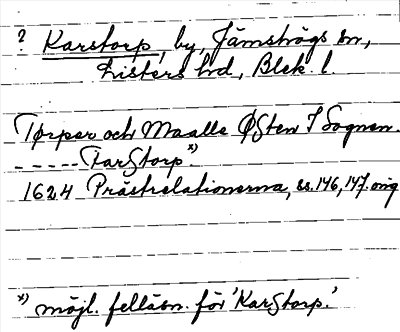 ? Karstorp, by, Jämshögs sn,
Listers hd, Blek. l.
Tørper och Maalle Østen I Sognen.
- - - - - FarStorp.*)
1624 Prästrelationerna, ss. 146, 147. orig
*) möjl. felläsn. för 'KarStorp.'